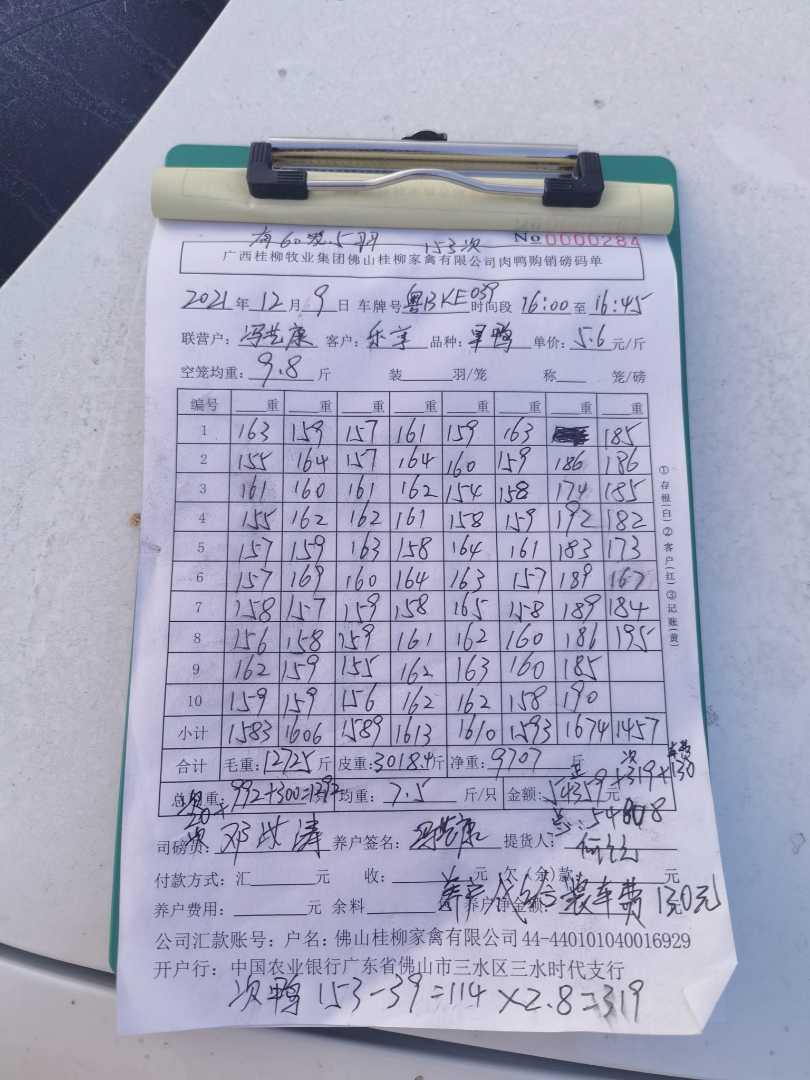 60 5羽 153次 No 0000284
广西桂柳牧业集团佛山桂柳家禽有限公司肉鸭购销磅码单
2021年12月9日 车牌号粤BKE039时间段16:00至16:45
联营户:冯艺康 客户:乐享 品种:旱鸭 单价:5.6元/斤
空笼均重:9.8斤 装 羽/笼 称 笼/磅
编号 重 重 重 重 重 重 重 重
1 163 159 157 161 159 163 185
2 155 164 157 164 160 159 186 186
3 161 160 161 162 154 158 174 185
4 155 162 162 161 158 159 192 182
5 157 159 163 158 164 161 183 173
6 157 169 160 164 163 157 189 167
7 158 157 159 158 165 158 189 184
8 156 158 159 161 162 160 186 195
9 162 159 155 162 163 160 185
10 159 159 156 162 162 158 190
小计 1583 1606 1589 1613 1610 1593 1674 1457
合计 毛重:12725斤 皮重:3018.4斤 净重:9707斤
重:992+300=1292 均重:7.5斤/只 金额:54359元+319+130
总:54808
司磅员:邓 涛 养户签名:冯艺康 提货人:
付款方式:汇 元 收: 元 欠(余)款 元
养户费用: 元 余料 养户净金额: 装车费130元
公司汇款账号:户名:佛山桂柳家禽有限公司44-440101040016929
开户行:中国农业银行广东省佛山市三水区三水时代支行
次鸭 153-39=114×2.8=319
①存根(白)②客户(红)③记账(黄)